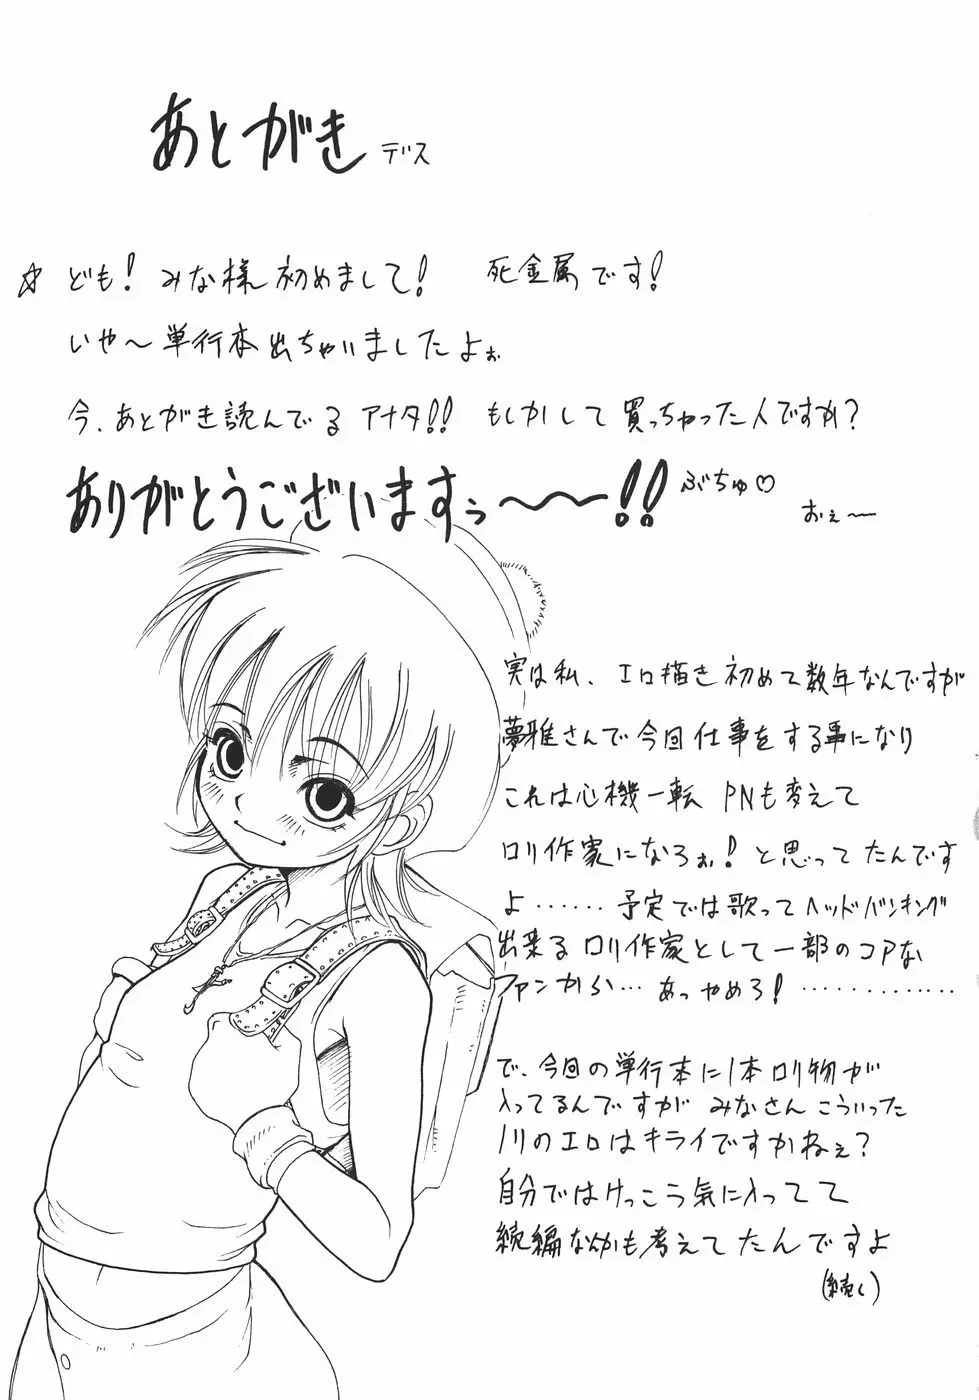 あとがき デス
☆ ども! みな様初めまして! 死金属です!
いや～単行本出ちゃいましたよぉ
今、あとがき読んでる アナタ!! もしかして 買っちゃった人ですか?
ありがとうございますぅ～～!! ぶちゅ♡
おぇ～
実は私、エロ描き初めて数年なんですが
夢雅さんで今回仕事をする事になり
これは心機一転 PNも変えて
ロリ作家になろぉ! と思ってたんです
よ……… 予定では歌ってヘッドバンキング
出来るロリ作家として一部のコアな
ファンから… あっやめろ! …………
で、今回の単行本に1本ロリ物が
入ってるんですが みなさん こういった
ノリのエロはキライですかねぇ?
自分ではけっこう気に入ってて
続編なんかも考えてたんですよ
(続く)